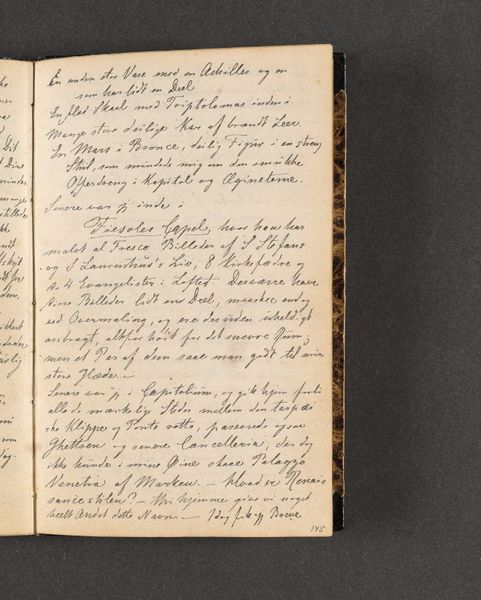 En anden stor Vase med en Achilles og en
som har lidt en Deel
En flad Skaal med Triptolemas inden i
Mange store deilige Kar af brændt Leer.
En Mars i Bronce, deilig Figur i en streng
Stiil, som mindede mig om den smukke
i Kapitol og Æginetterne.
Senere var jeg inde i
Fiesoles Capel, hvor han har
malet al Fresco Billeder af S Stefans
og S Laurentius's Liv, 8 Kirkefædre og
de 4 Evangelister i Loftet. Desværre have
disse Billeder lidt en Deel, maaskee endog
ved Overmaling, og ere desuden uheldigt
anbragt, altfor høit for det snevre Rum;
men et Par af dem saae man godt til min
store Glæde. —
Senere var jeg i Capitolium, og gik hjem forbi
alle de mærkelige Steder mellem den tarpæi
ske Klippe og Ponte rotto, passerede ogsaa
Ghettoen og senere Cancelleria, der dog
ikke kunde i mine Øine slaae Palazzo
Venetia af Marken. — Hvad er Renais
sancestilen? — Hos hjemme give vi noget
heelt Andet dette Navn. — Idag fik jeg Breve